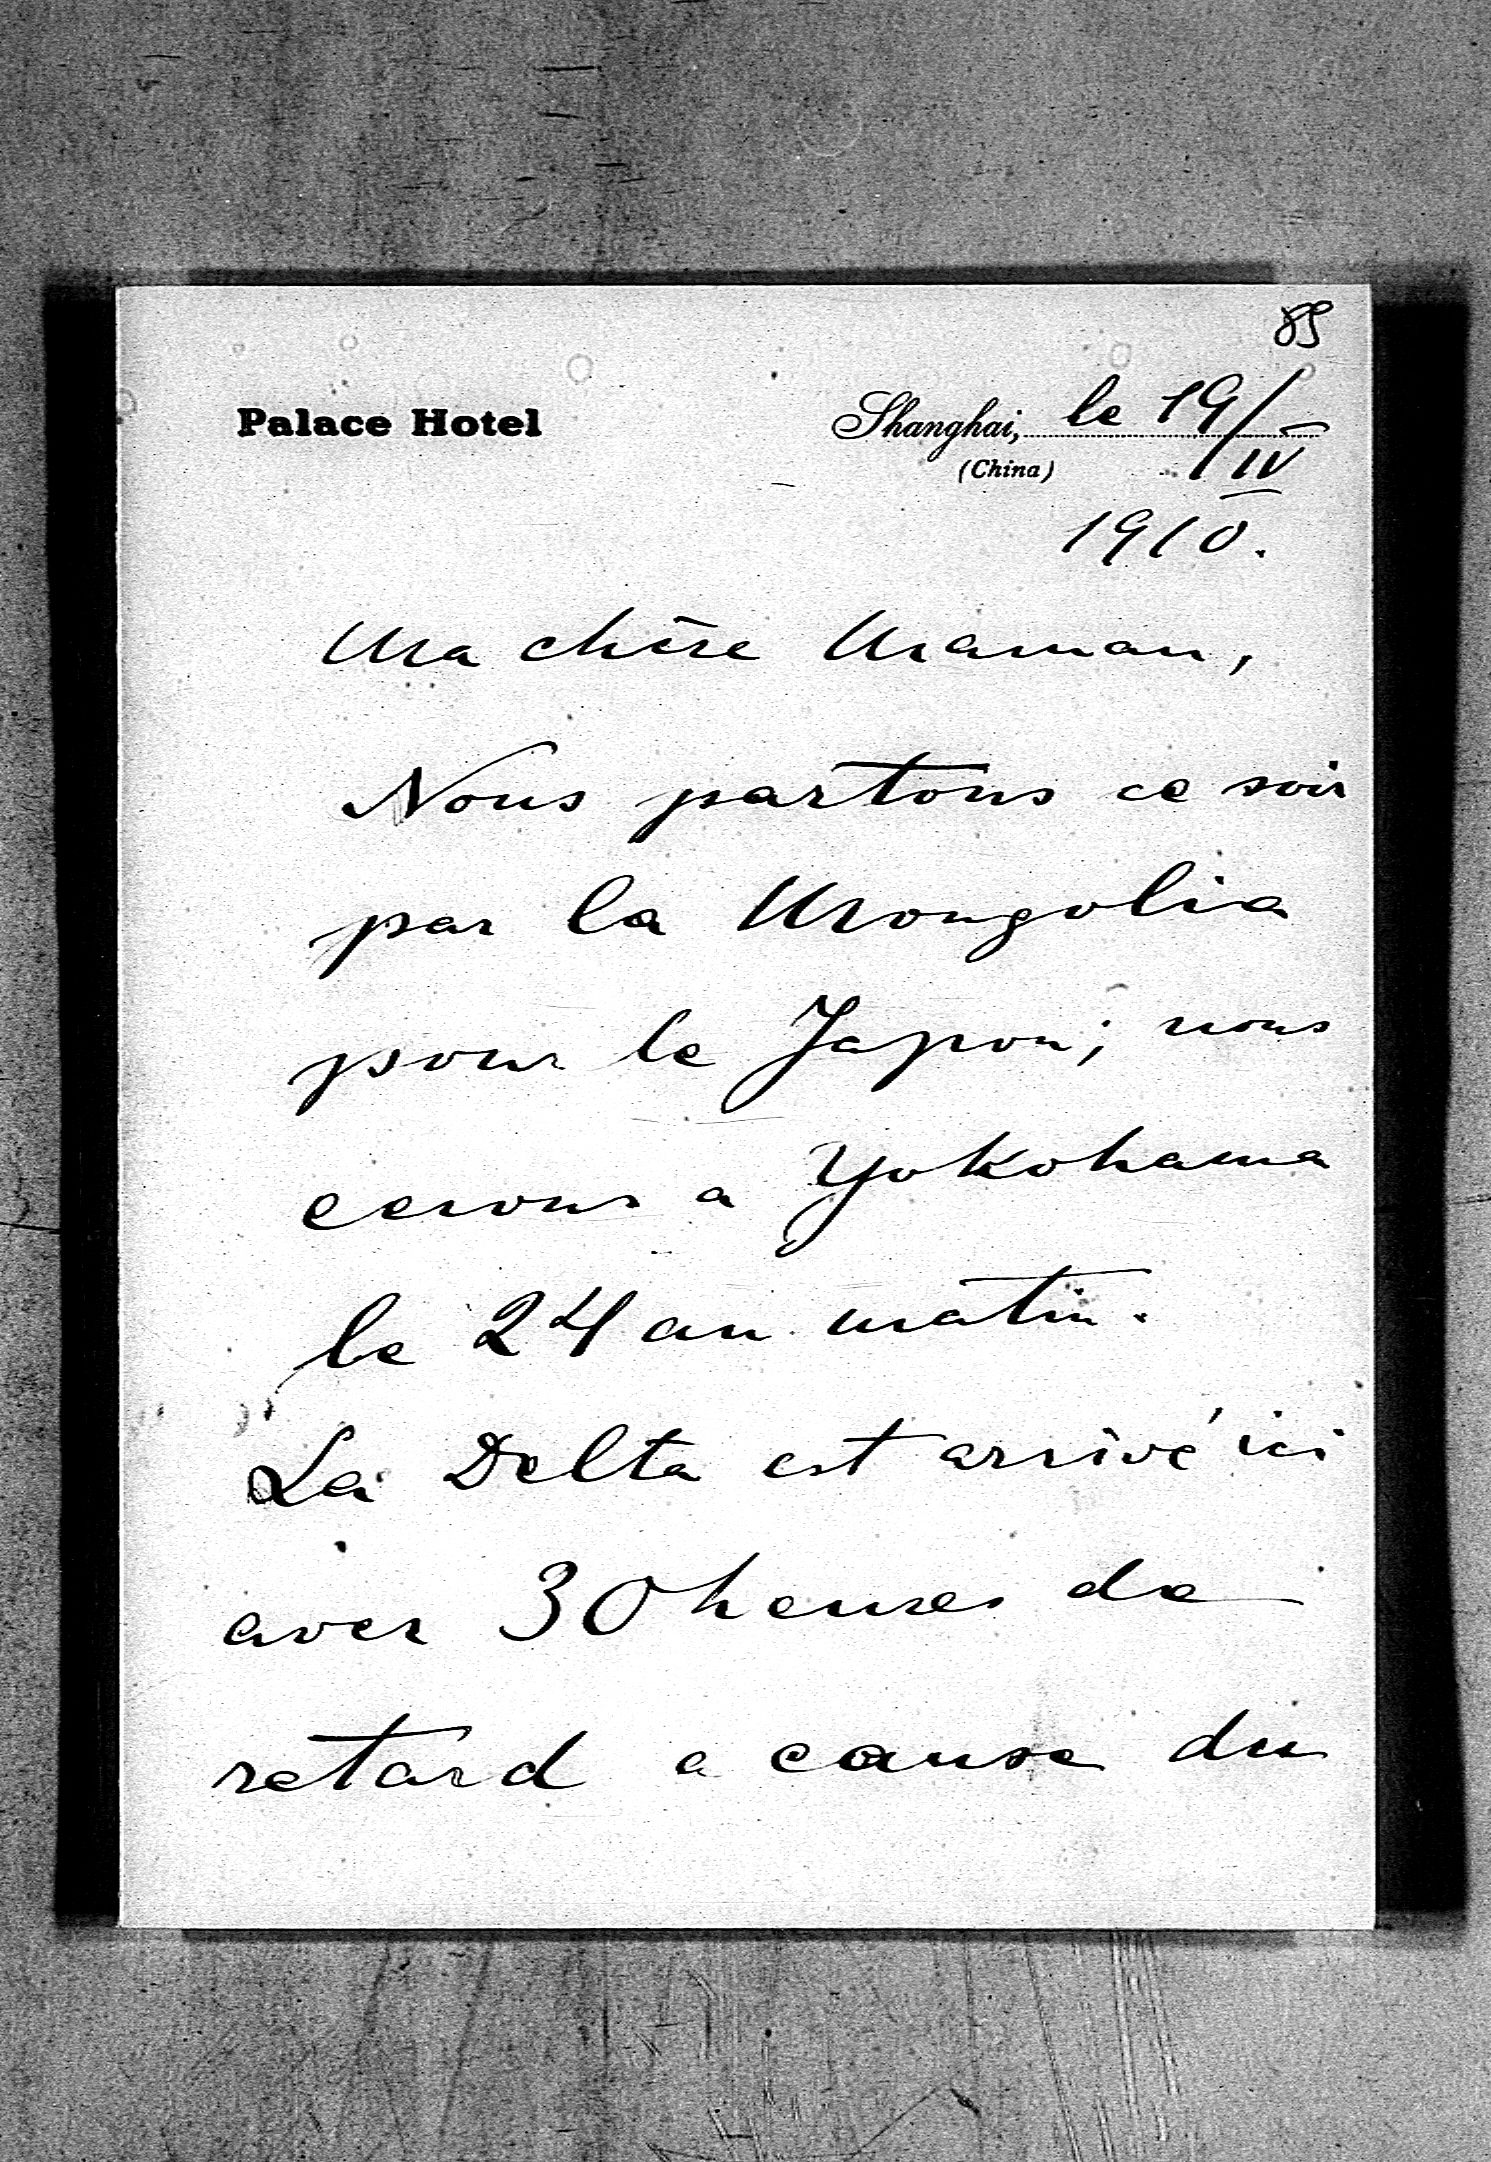 85
Palace Hotel
Shanghai, le 19/IV
(China)
1910.
Ma chère Maman,
Nous partons ce soir
par la Mongolia
pour le Japon; nous
serons a Yokohama
le 24 au matin.
La Delta est arrivé ici
avec 30 heures de
retard a cause du